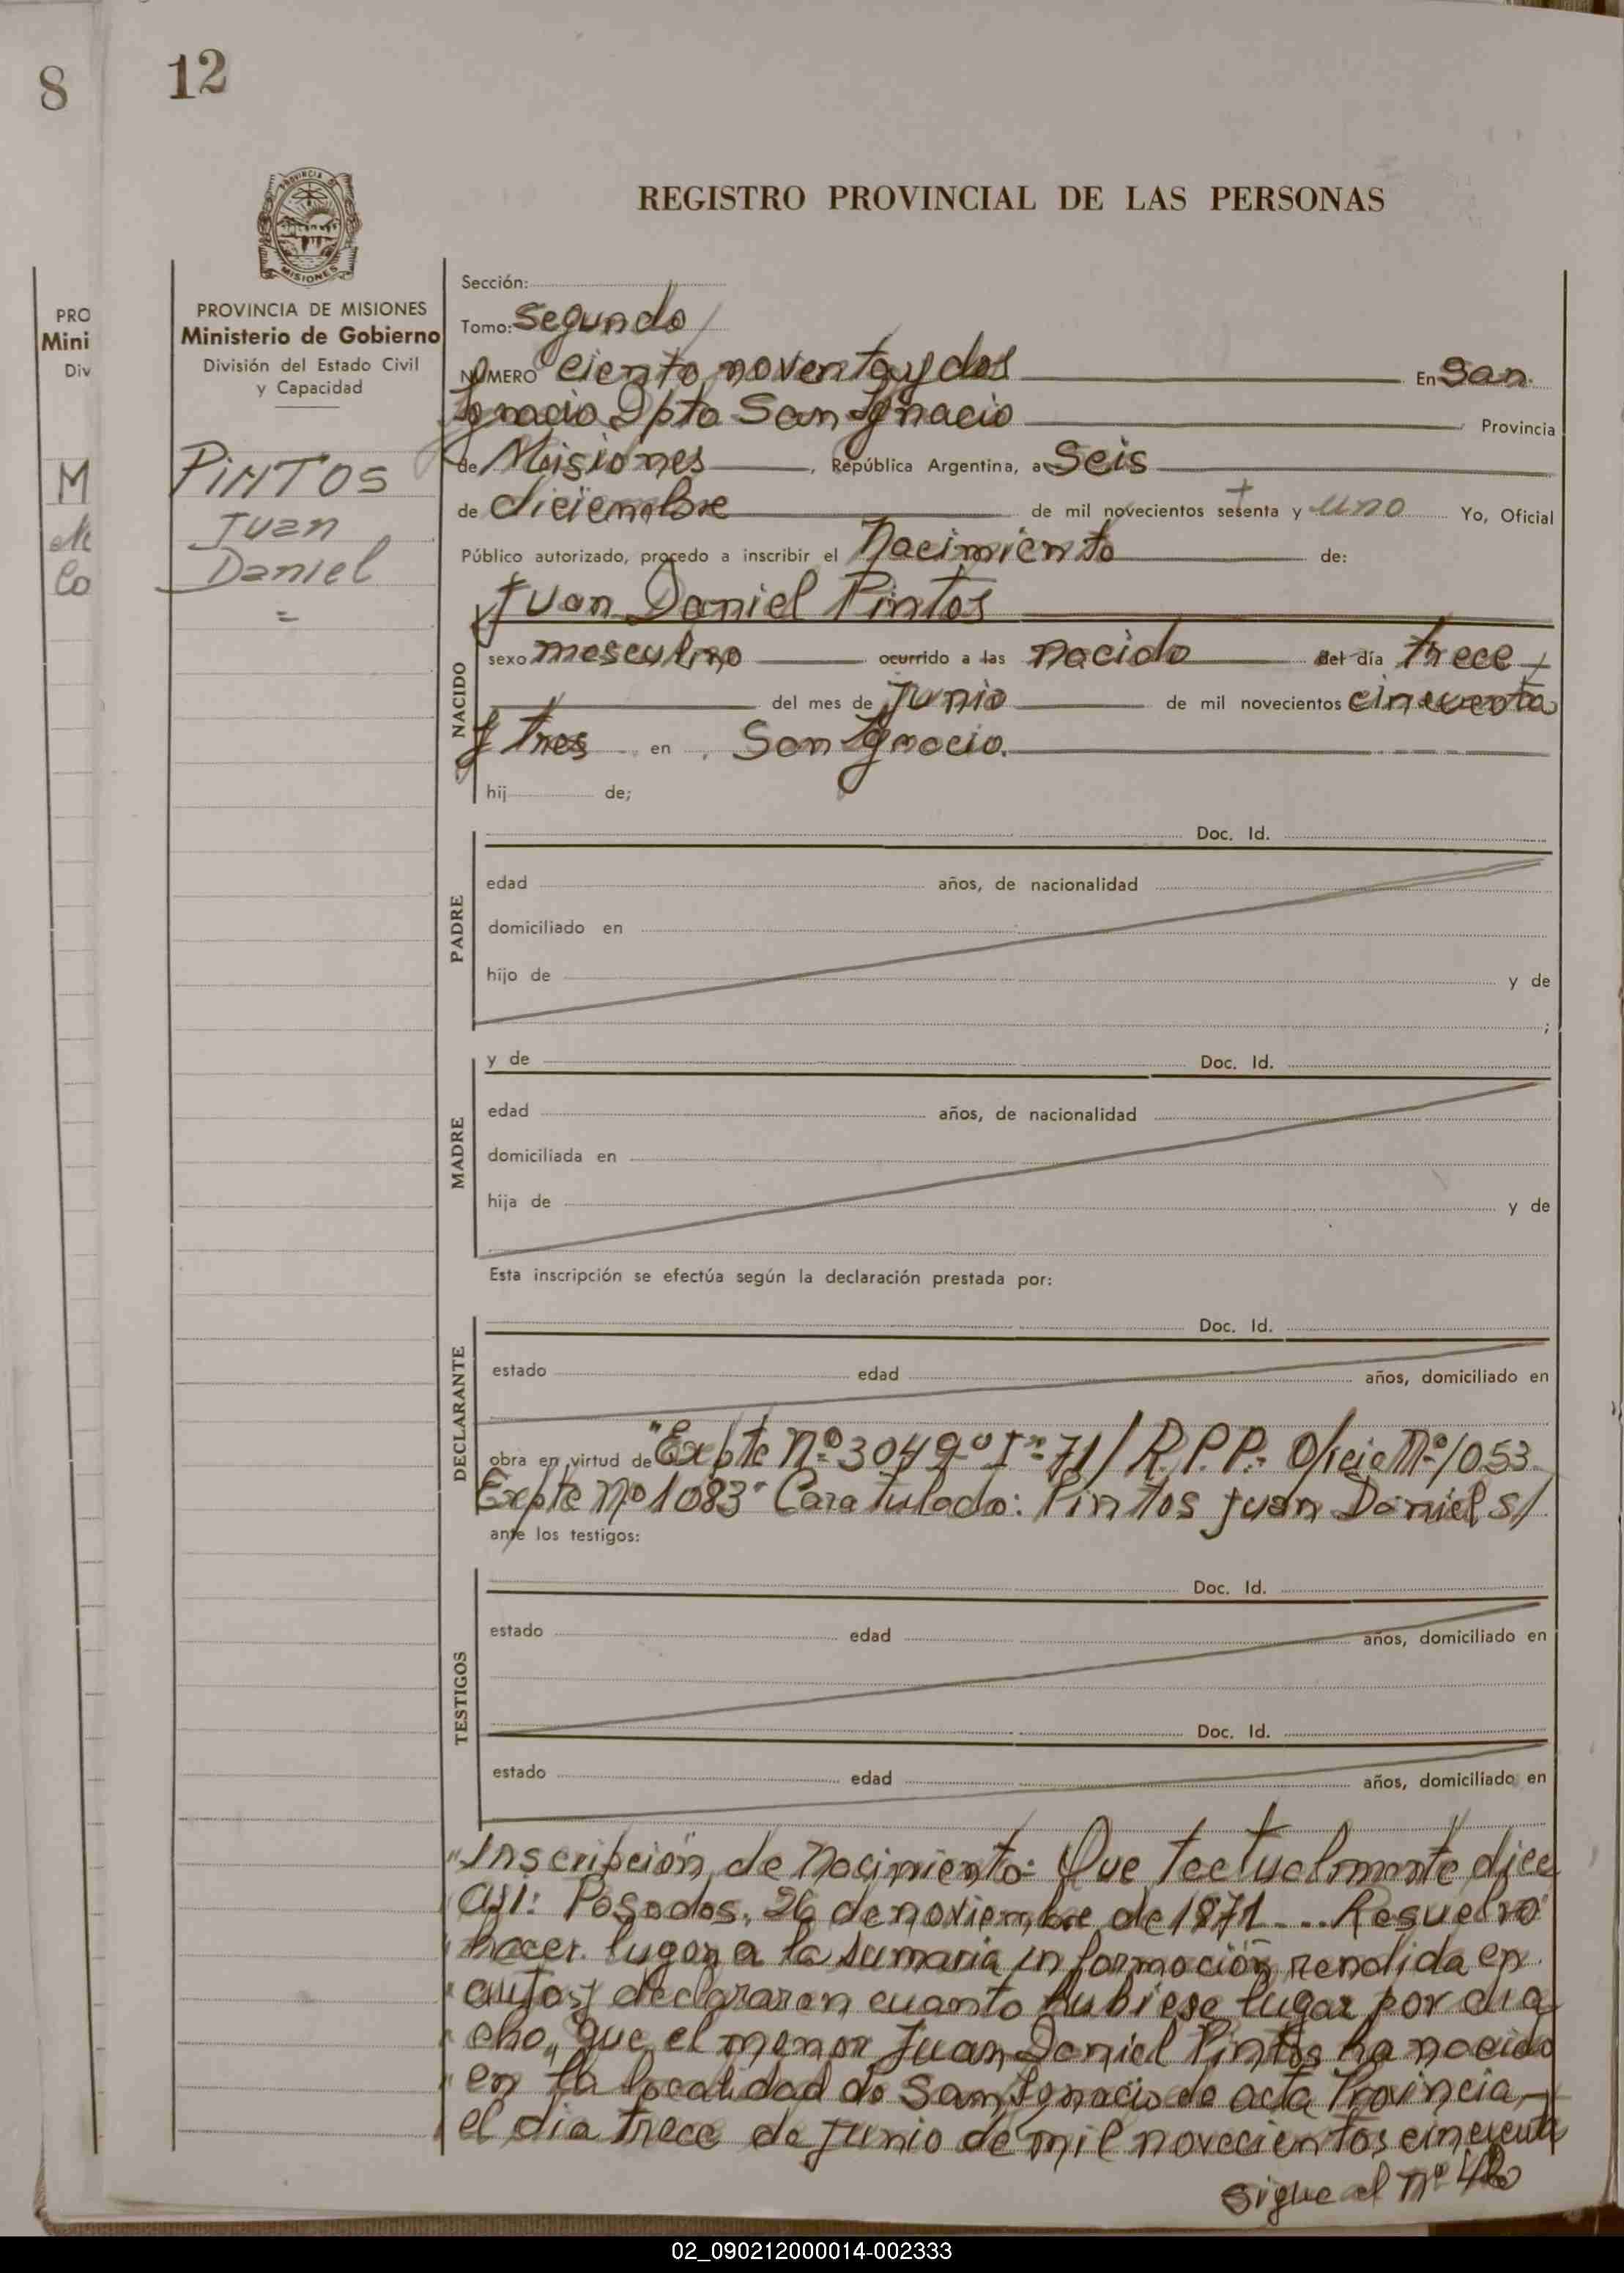 8
12
PRO
Mini
Div
M
Co
PROVINCIA DE
MISIONES
PROVINCIA DE MISIONES
Ministerio de Gobierno
División del Estado Civil
y Capacidad
PINTOS
Juan
Daniel
=
REGISTRO PROVINCIAL DE LAS PERSONAS
Sección:
Tomo: Segundo
NUMERO ciento noventa y dos En San
Ignacio Dpto San Ignacio Provincia
de Misiones, República Argentina, a Seis
de diciembre de mil novecientos setenta y uno Yo, Oficial
Público autorizado, procedo a inscribir el Nacimiento de:
Juan Daniel Pintos
NACIDO
sexo masculino ocurrido a las nacido del día trece
del mes de Junio de mil novecientos cincuenta
y tres en San Ignacio.
hij de;
PADRE
Doc. Id.
edad años, de nacionalidad
domiciliado en
hijo de y de
;
MADRE
y de Doc. Id.
edad años, de nacionalidad
domiciliada en
hija de y de
Esta inscripción se efectúa según la declaración prestada por:
DECLARANTE
Doc. Id.
estado edad años, domiciliado en
obra en virtud de "Expte Nº 3049º I" 71/R.P.P.- Oficio Nº 1053
Expte Nº 1083" Caratulado: Pintos Juan Daniel s/
ante los testigos:
TESTIGOS
Doc. Id.
estado edad años, domiciliado en
Doc. Id.
estado edad años, domiciliado en
"Inscripción de Nacimiento: Que tectualmente dice
así: Posadas, 26 de noviembre de 1871 ... Resuelvo
hacer lugar a la sumaria información rendida en
autos y declarar en cuanto hubiese lugar por
cho, que el menor Juan Daniel Pintos ha nacido
en la localidad de San Ignacio de acta Provincia,
el dia trece de Junio de mil novecientos cincuenta
sigue al Nº
02_090212000014-002333